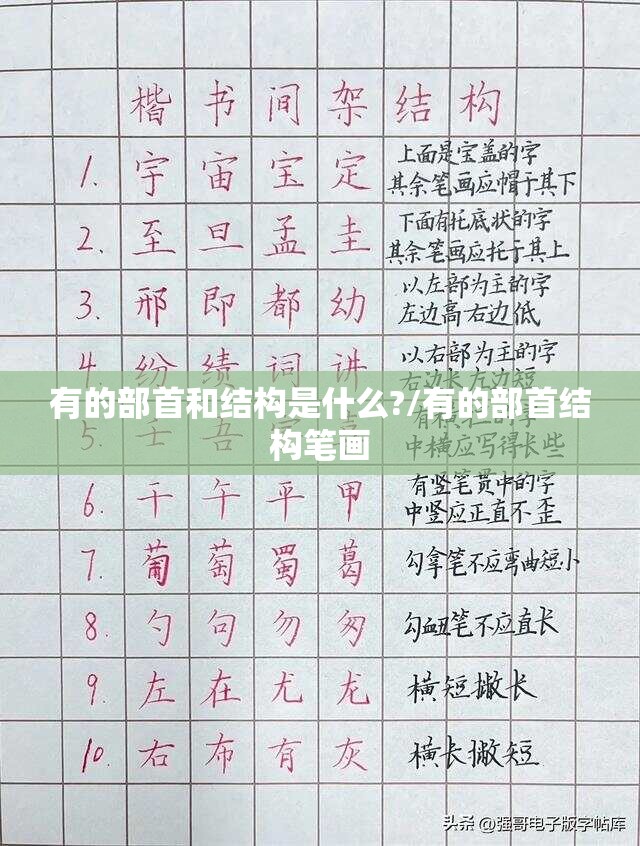 楷书间架结构
1. 宇宙宝定 上面是宝盖的字
其余笔画应帽于其下
2. 至旦孟圭 下面有托底状的字
其余笔画应托于其上
3. 邢即都幼 以左部为主的字
左边高右边低
4. 纷绩词讲 以右部为主的字
右边长左边短
有的部首和结构是什么?/有的部首结
构笔画
5. 壬吾
中横应写得长些
6. 干午平甲 有竖笔贯中的字
中竖应正直不歪
7. 葡萄蜀葛 勾拿笔不应弯曲短小
8. 勺句勿匆 勾血笔不应直长
9. 左在尤龙 横短撇长
10. 右布有灰 横长撇短
头条 @强哥电子版字帖库